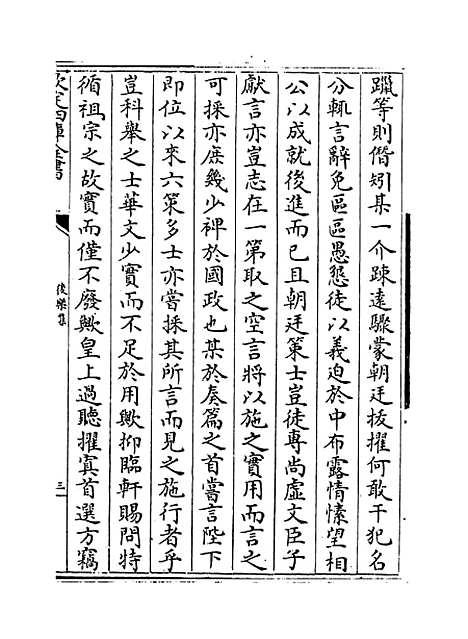 躐等則僭矧某一介踈逺驟蒙朝廷拔擢何敢干犯名
分輒言辭免區區愚怨徒以義迫於中布露情愫望相
公以成就後進而已且朝廷策士豈徒専尚虚文臣子
獻言亦豈志在一第取之空言將以施之實用而言之
可採亦庶幾少裨於國政也某於奏篇之首嘗言陛下
即位以來六策多士亦嘗採其所言而見之施行者乎
豈科舉之士華文少實而不足於用歟抑臨軒賜問特
循祖宗之故實而僅不廢歟皇上過聽擢寘首選方竊
欽定四庫全書
後樂集
三